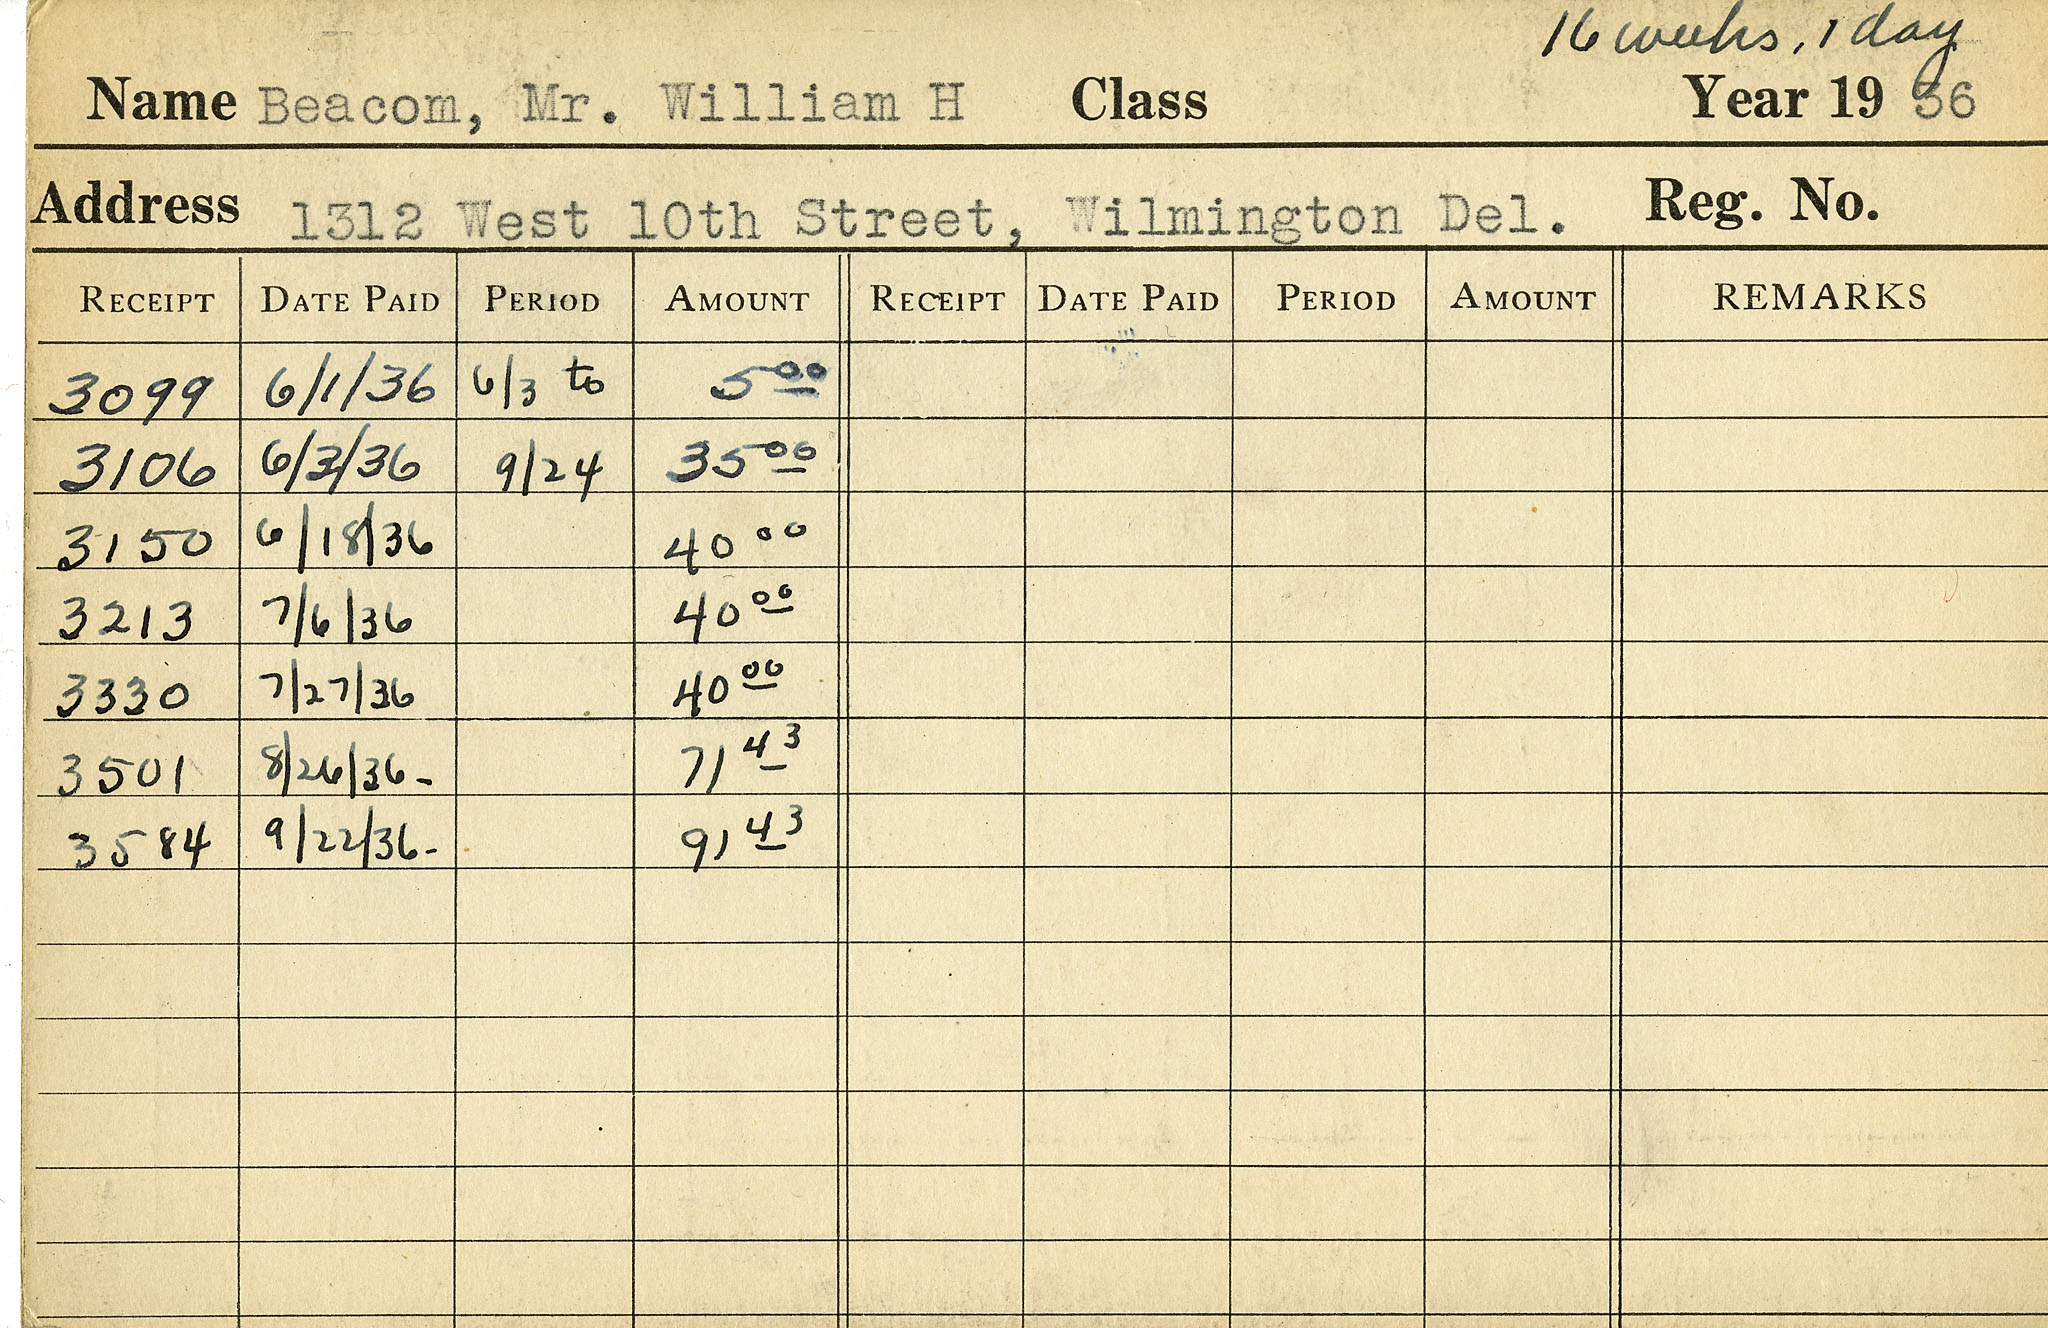 16 weeks, 1 day
Name Beacom, Mr. William H Class Year 19 36
Address 1312 West 10th Street, Wilmington Del. Reg. No.
RECEIPT DATE PAID PERIOD AMOUNT RECEIPT DATE PAID PERIOD AMOUNT REMARKS
3099 6/1/36 6/3 to 5 00
3106 6/3/36 9/24 35 00
3150 6/18/36 40 00
3213 7/6/36 40 00
3330 7/27/36 40 00
3501 8/26/36- 71 43
3584 9/22/36- 91 43